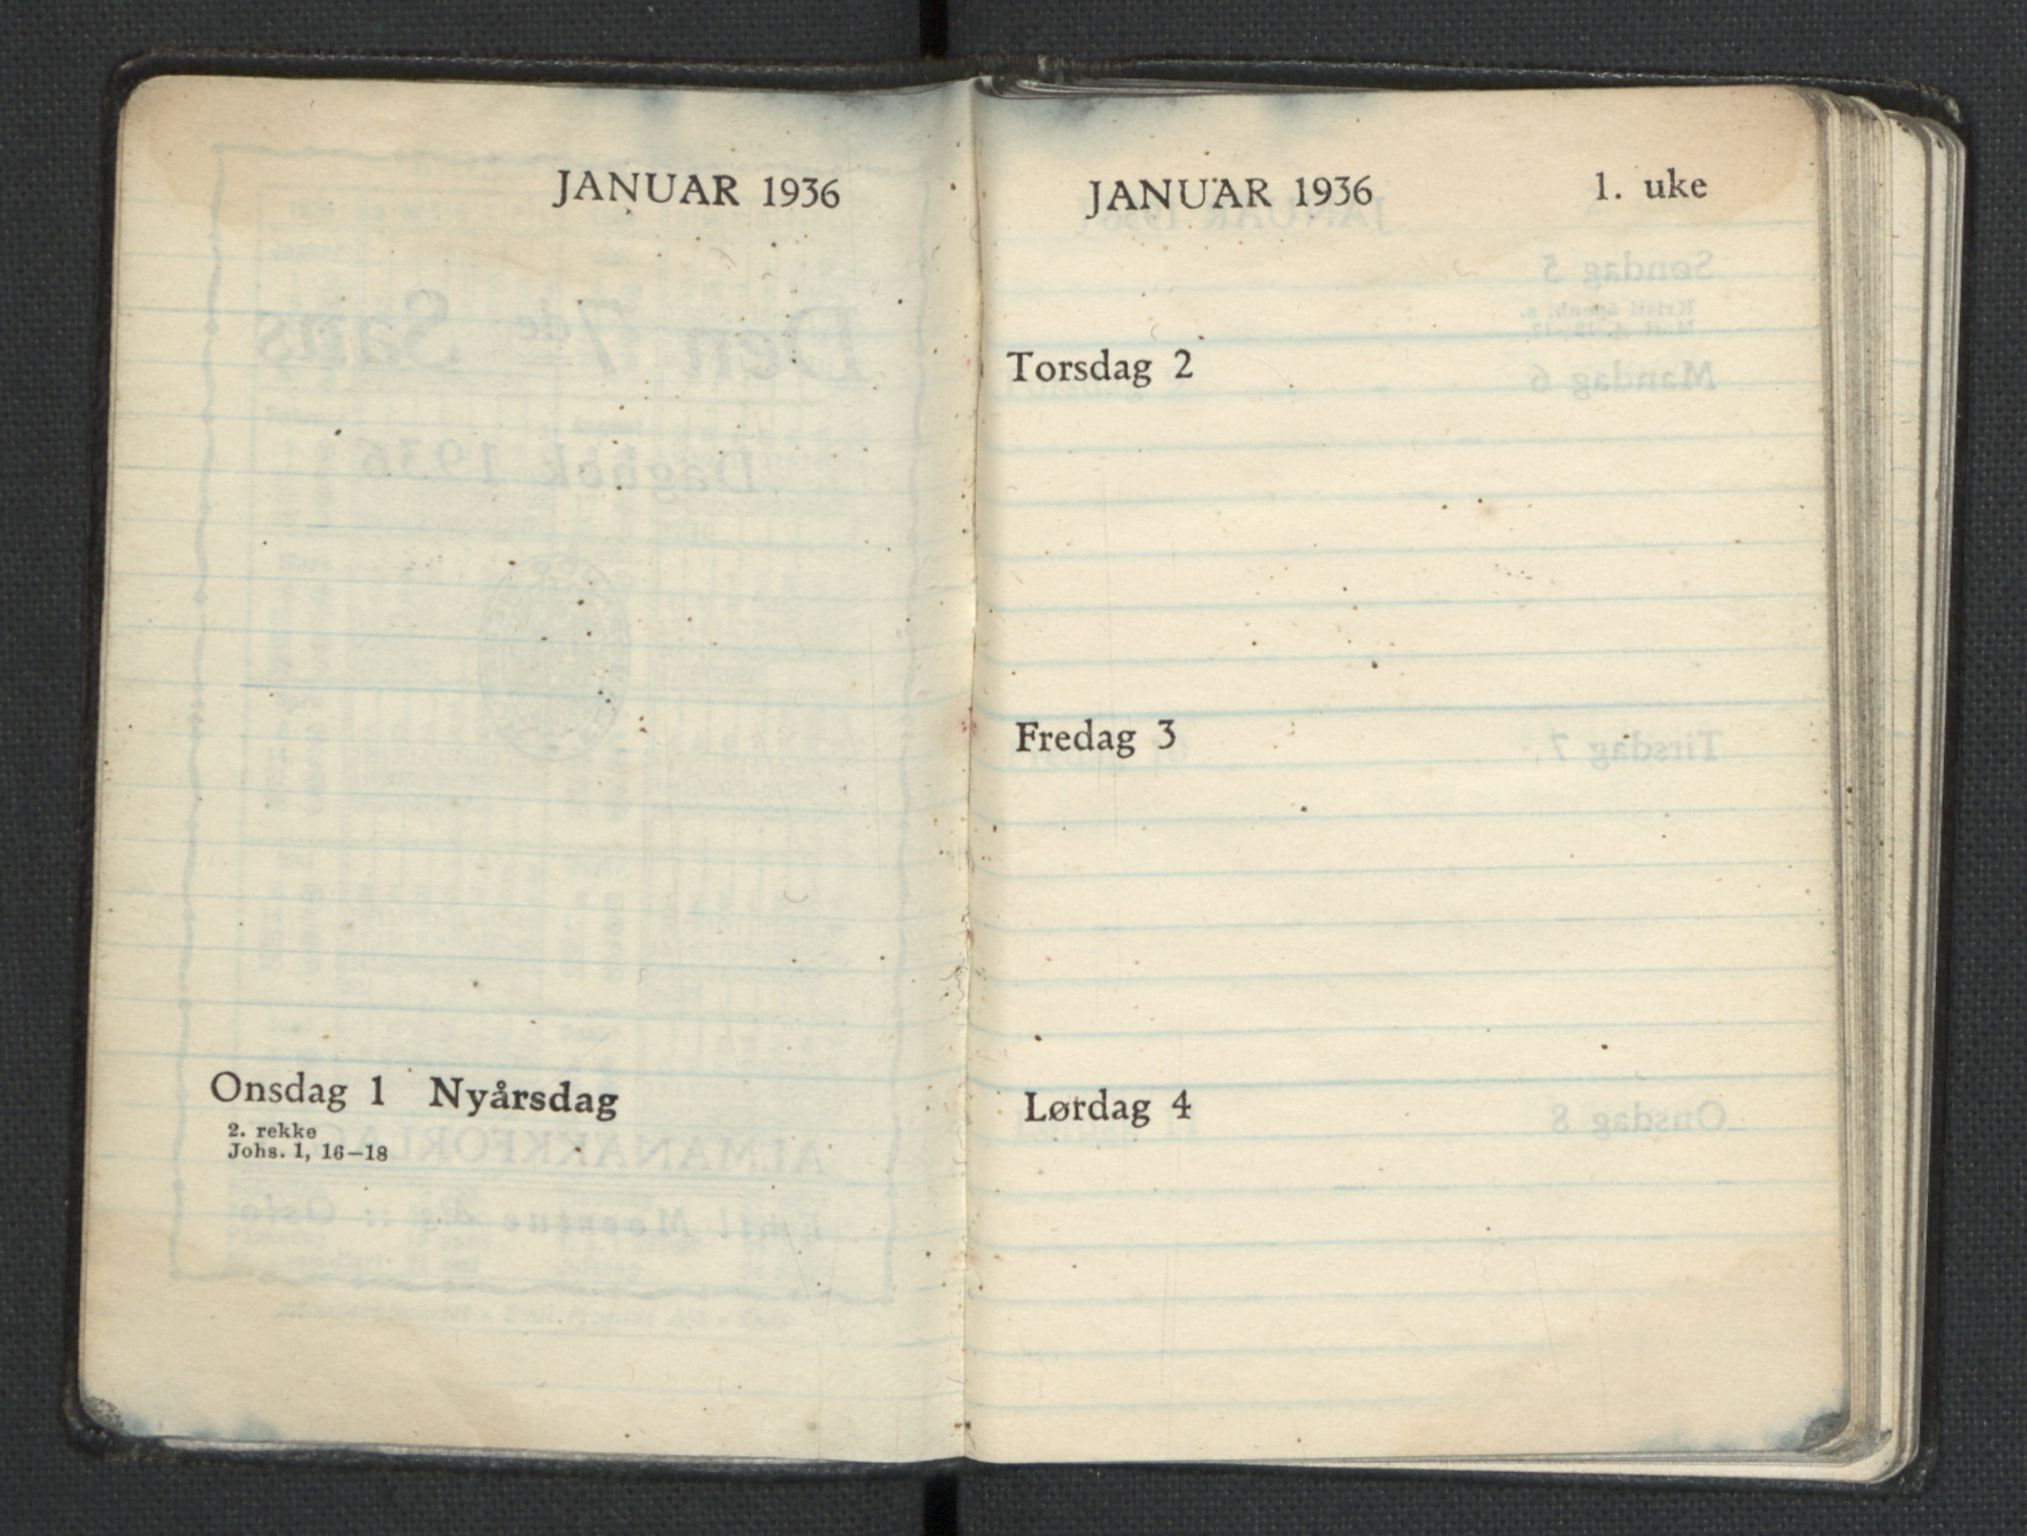 JANUAR 1936
Onsdag 1 Nyårsdag
2. rekke
Johs. 1, 16–18
JANUAR 1936 1. uke
Torsdag 2
Fredag 3
Lørdag 4